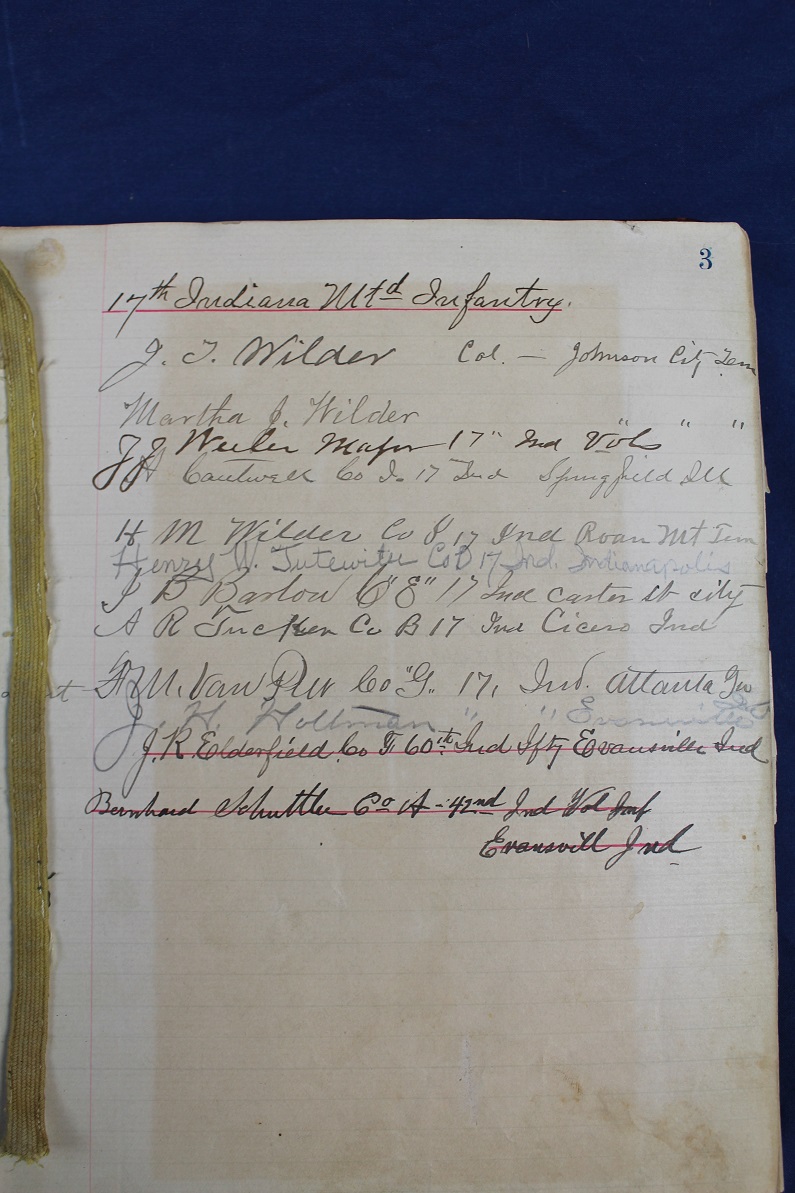 3
17th Indiana Mtd Infantry.
J. T. Wilder Col. — Johnson City Tenn
Martha J. Wilder " " "
J J Weiler Major 17" Ind Vols
J A Cantwell Co I. 17 Ind Springfield Ill
H M Wilder Co 17 Ind Roan Mt Tenn
Henry W. Tutewiler Co B 17 Ind. Indianapolis
J B Barlow C "E" 17 Ind carter st city
A R Tucker Co B 17 Ind Cicero Ind
M. Van Pelt Co "G" 17, Ind. Atlanta
J. H. Holtman " " Evansville
J. R. Elderfield. Co F 60th Ind Ifty Evansville Ind
Bernhard Schuttler Co A - 42nd Ind Vol Inf
Evansvill Ind